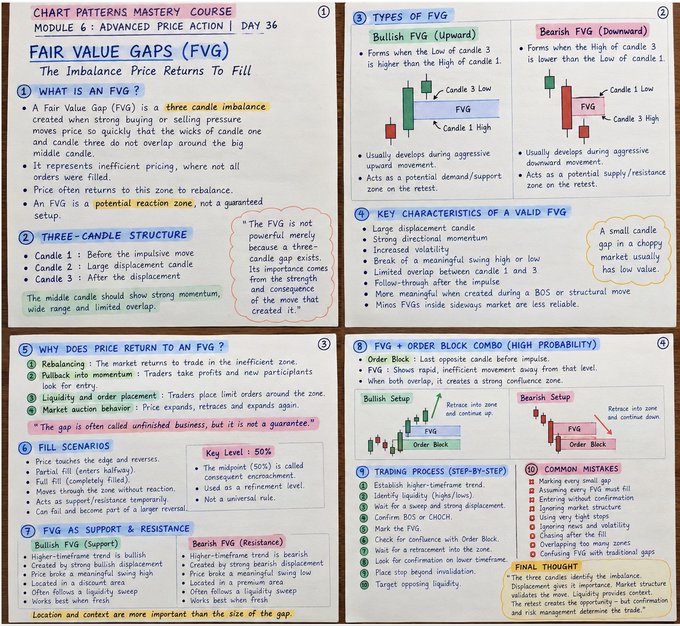 CHART PATTERNS MASTERY COURSE
1
MODULE 6 : ADVANCED PRICE ACTION | DAY 36
FAIR VALUE GAPS (FVG)
The Imbalance Price Returns To Fill
1 WHAT IS AN FVG ?
• A Fair Value Gap (FVG) is a three candle imbalance
created when strong buying or selling pressure
moves price so quickly that the wicks of candle one
and candle three do not overlap around the big
middle candle.
• It represents inefficient pricing, where not all
orders were filled.
• Price often returns to this zone to rebalance.
• An FVG is a potential reaction zone, not a guaranteed
setup.
2 THREE-CANDLE STRUCTURE
• Candle 1 : Before the impulsive move
• Candle 2 : Large displacement candle
• Candle 3 : After the displacement
The middle candle should show strong momentum,
wide range and limited overlap.
"The FVG is not
powerful merely
because a three-
candle gap exists.
Its importance comes
from the strength
and consequence
of the move that
created it."
3 TYPES OF FVG
2
Bullish FVG (Upward)
• Forms when the Low of candle 3
is higher than the High of candle 1.
Candle 3 Low
FVG
Candle 1 High
• Usually develops during aggressive
upward movement.
• Acts as a potential demand/support
zone on the retest.
Bearish FVG (Downward)
• Forms when the High of candle 3
is lower than the Low of candle 1.
Candle 1 Low
FVG
Candle 3 High
• Usually develops during aggressive
downward movement.
• Acts as a potential supply/resistance
zone on the retest.
4 KEY CHARACTERISTICS OF A VALID FVG
• Large displacement candle
• Strong directional momentum
• Increased volatility
• Break of a meaningful swing high or low
• Limited overlap between candle 1 and 3
• Follow-through after the impulse
• More meaningful when created during a BOS or structural move
• Minos FVGs inside sideways market are less reliable.
A small candle
gap in a choppy
market usually
has low value.
5 WHY DOES PRICE RETURN TO AN FVG ?
3
1 Rebalancing : The market returns to trade in the inefficient zone.
2 Pullback into momentum : Traders take profits and new participants
look for entry.
3 Liquidity and order placement : Traders place limit orders around the zone.
4 Market auction behavior : Price expands, retraces and expands again.
"The gap is often called unfinished business, but it is not a guarantee."
6 FILL SCENARIOS
• Price touches the edge and reverses.
• Partial fill (enters halfway).
• Full fill (completely filled).
• Moves through the zone without reaction.
• Acts as support/resistance temporarily.
• Can fail and become part of a larger reversal.
Key Level : 50%
• The midpoint (50%) is called
consequent encroachment.
• Used as a refinement level.
• Not a universal rule.
7 FVG AS SUPPORT & RESISTANCE
Bullish FVG (Support)
• Higher-timeframe trend is bullish
• Created by strong bullish displacement
• Price broke a meaningful swing high
• Located in a discount area
• Often follows a liquidity sweep
• Works best when fresh
Bearish FVG (Resistance)
• Higher-timeframe trend is bearish
• Created by strong bearish displacement
• Price broke a meaningful swing low
• Located in a premium area
• Often follows a liquidity sweep
• Works best when fresh
Location and context are more important than the size of the gap.
8 FVG + ORDER BLOCK COMBO (HIGH PROBABILITY)
4
• Order Block : Last opposite candle before impulse.
• FVG : Shows rapid, inefficient movement away from that level.
• When both overlap, it creates a strong confluence zone.
Bullish Setup
Retrace into zone
and continue up.
FVG
Order Block
Bearish Setup
Retrace into zone
and continue down.
FVG
Order Block
9 TRADING PROCESS (STEP-BY-STEP)
1 Establish higher-timeframe trend.
2 Identify liquidity (highs/lows).
3 Wait for a sweep and strong displacement.
4 Confirm BOS or CHOCH.
5 Mark the FVG.
6 Check for confluence with Order Block.
7 Wait for a retracement into the zone.
8 Look for confirmation on lower timeframe.
9 Place stop beyond invalidation.
10 Target opposing liquidity.
10 COMMON MISTAKES
Marking every small gap
Assuming every FVG must fill
Entering without confirmation
Ignoring market structure
Using very tight stops
Ignoring news and volatility
Chasing after the fill
Overlapping too many zones
Confusing FVG with traditional gaps
FINAL THOUGHT
"The three candles identify the imbalance.
Displacement gives it importance. Market structure
validates the move. Liquidity provides context.
The retest creates the opportunity - but confirmation
and risk management determine the trade."